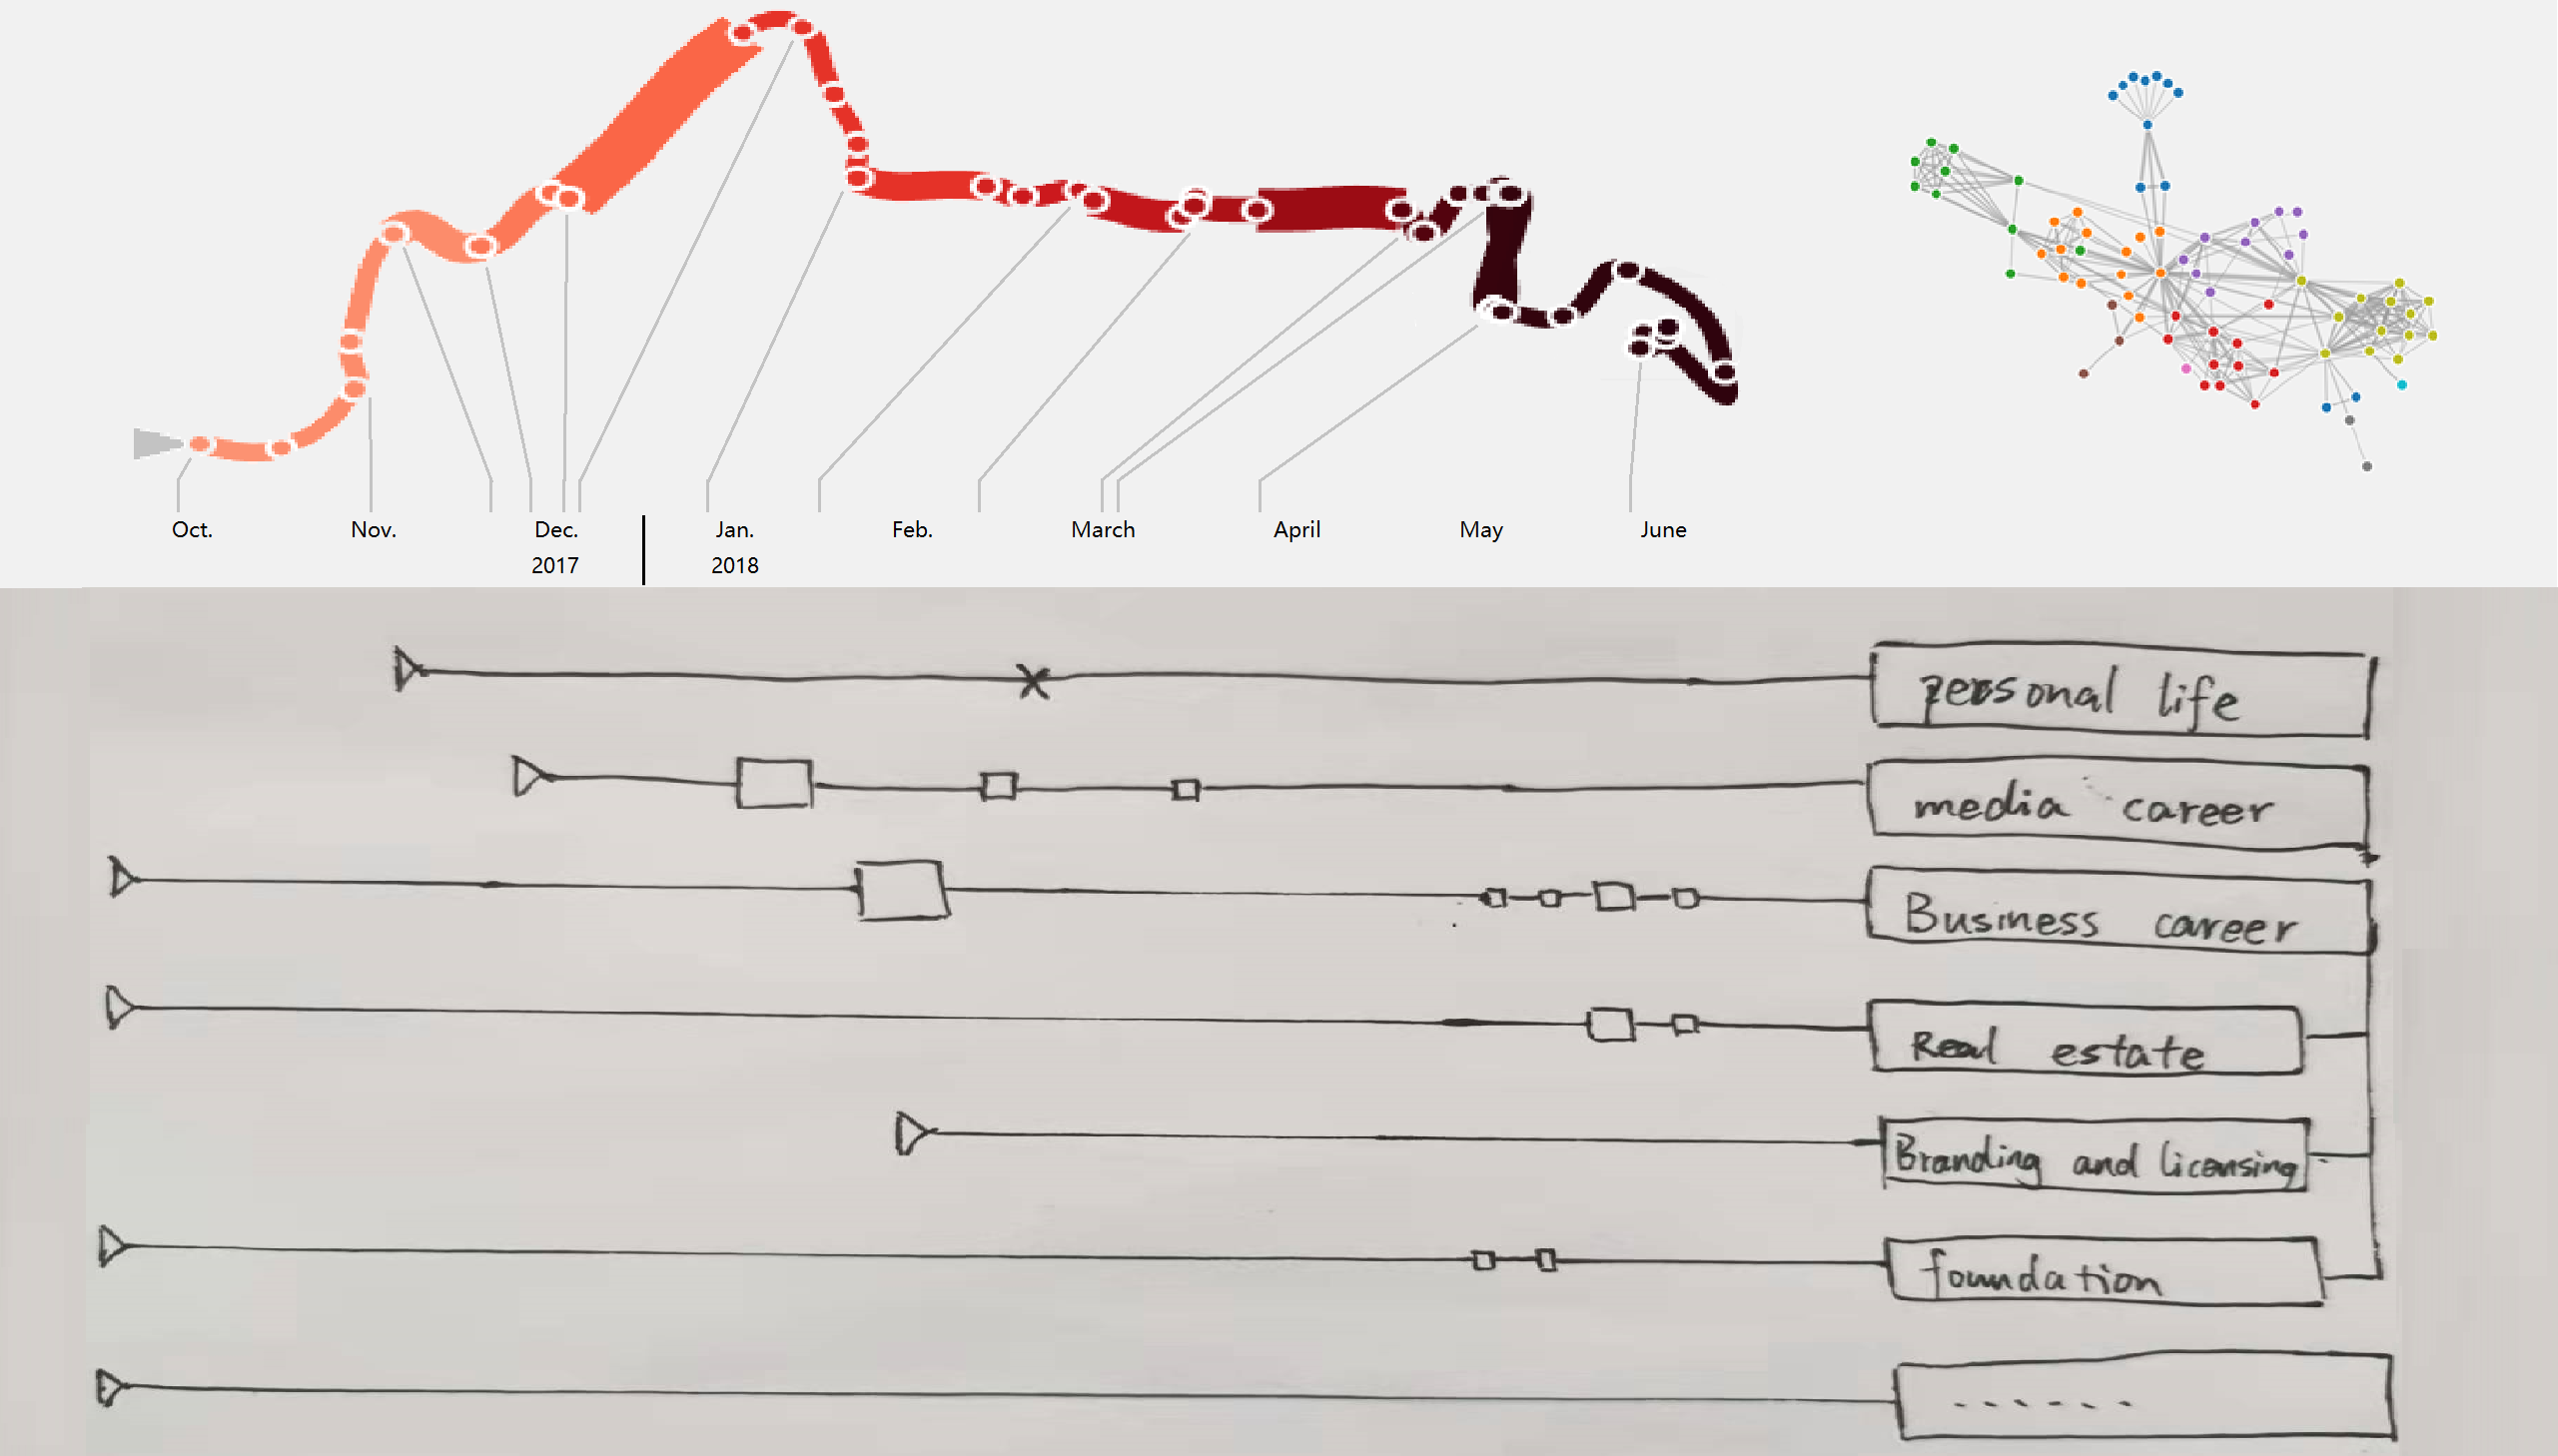 Oct. Nov. Dec. Jan. Feb. March April May June
2017 2018
personal life
media career
Business career
Real estate
Branding and licensing
foundation
......